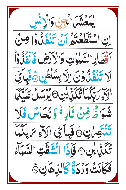 يٰمَعْشَرَ الْجِنِّ وَالْاِنْسِ
اِنِ اسْتَطَعْتُمْ اَنْ تَنْفُذُوْا مِنْ
اَقْطَارِ السَّمٰوٰتِ وَالْاَرْضِ فَانْفُذُوْا
لَا تَنْفُذُوْنَ اِلَّا بِسُلْطٰنٍ۝ فَبِاَيِّ
اٰلَآءِ رَبِّكُمَا تُكَذِّبٰنِ۝ يُرْسَلُ عَلَيْكُمَا
شُوَاظٌ مِّنْ نَّارٍ وَّنُحَاسٌ فَلَا
تَنْتَصِرٰنِ۝ فَبِاَيِّ اٰلَآءِ رَبِّكُمَا
تُكَذِّبٰنِ۝ فَاِذَا انْشَقَّتِ السَّمَآءُ
فَكَانَتْ وَرْدَةً كَالدِّهَانِ۝